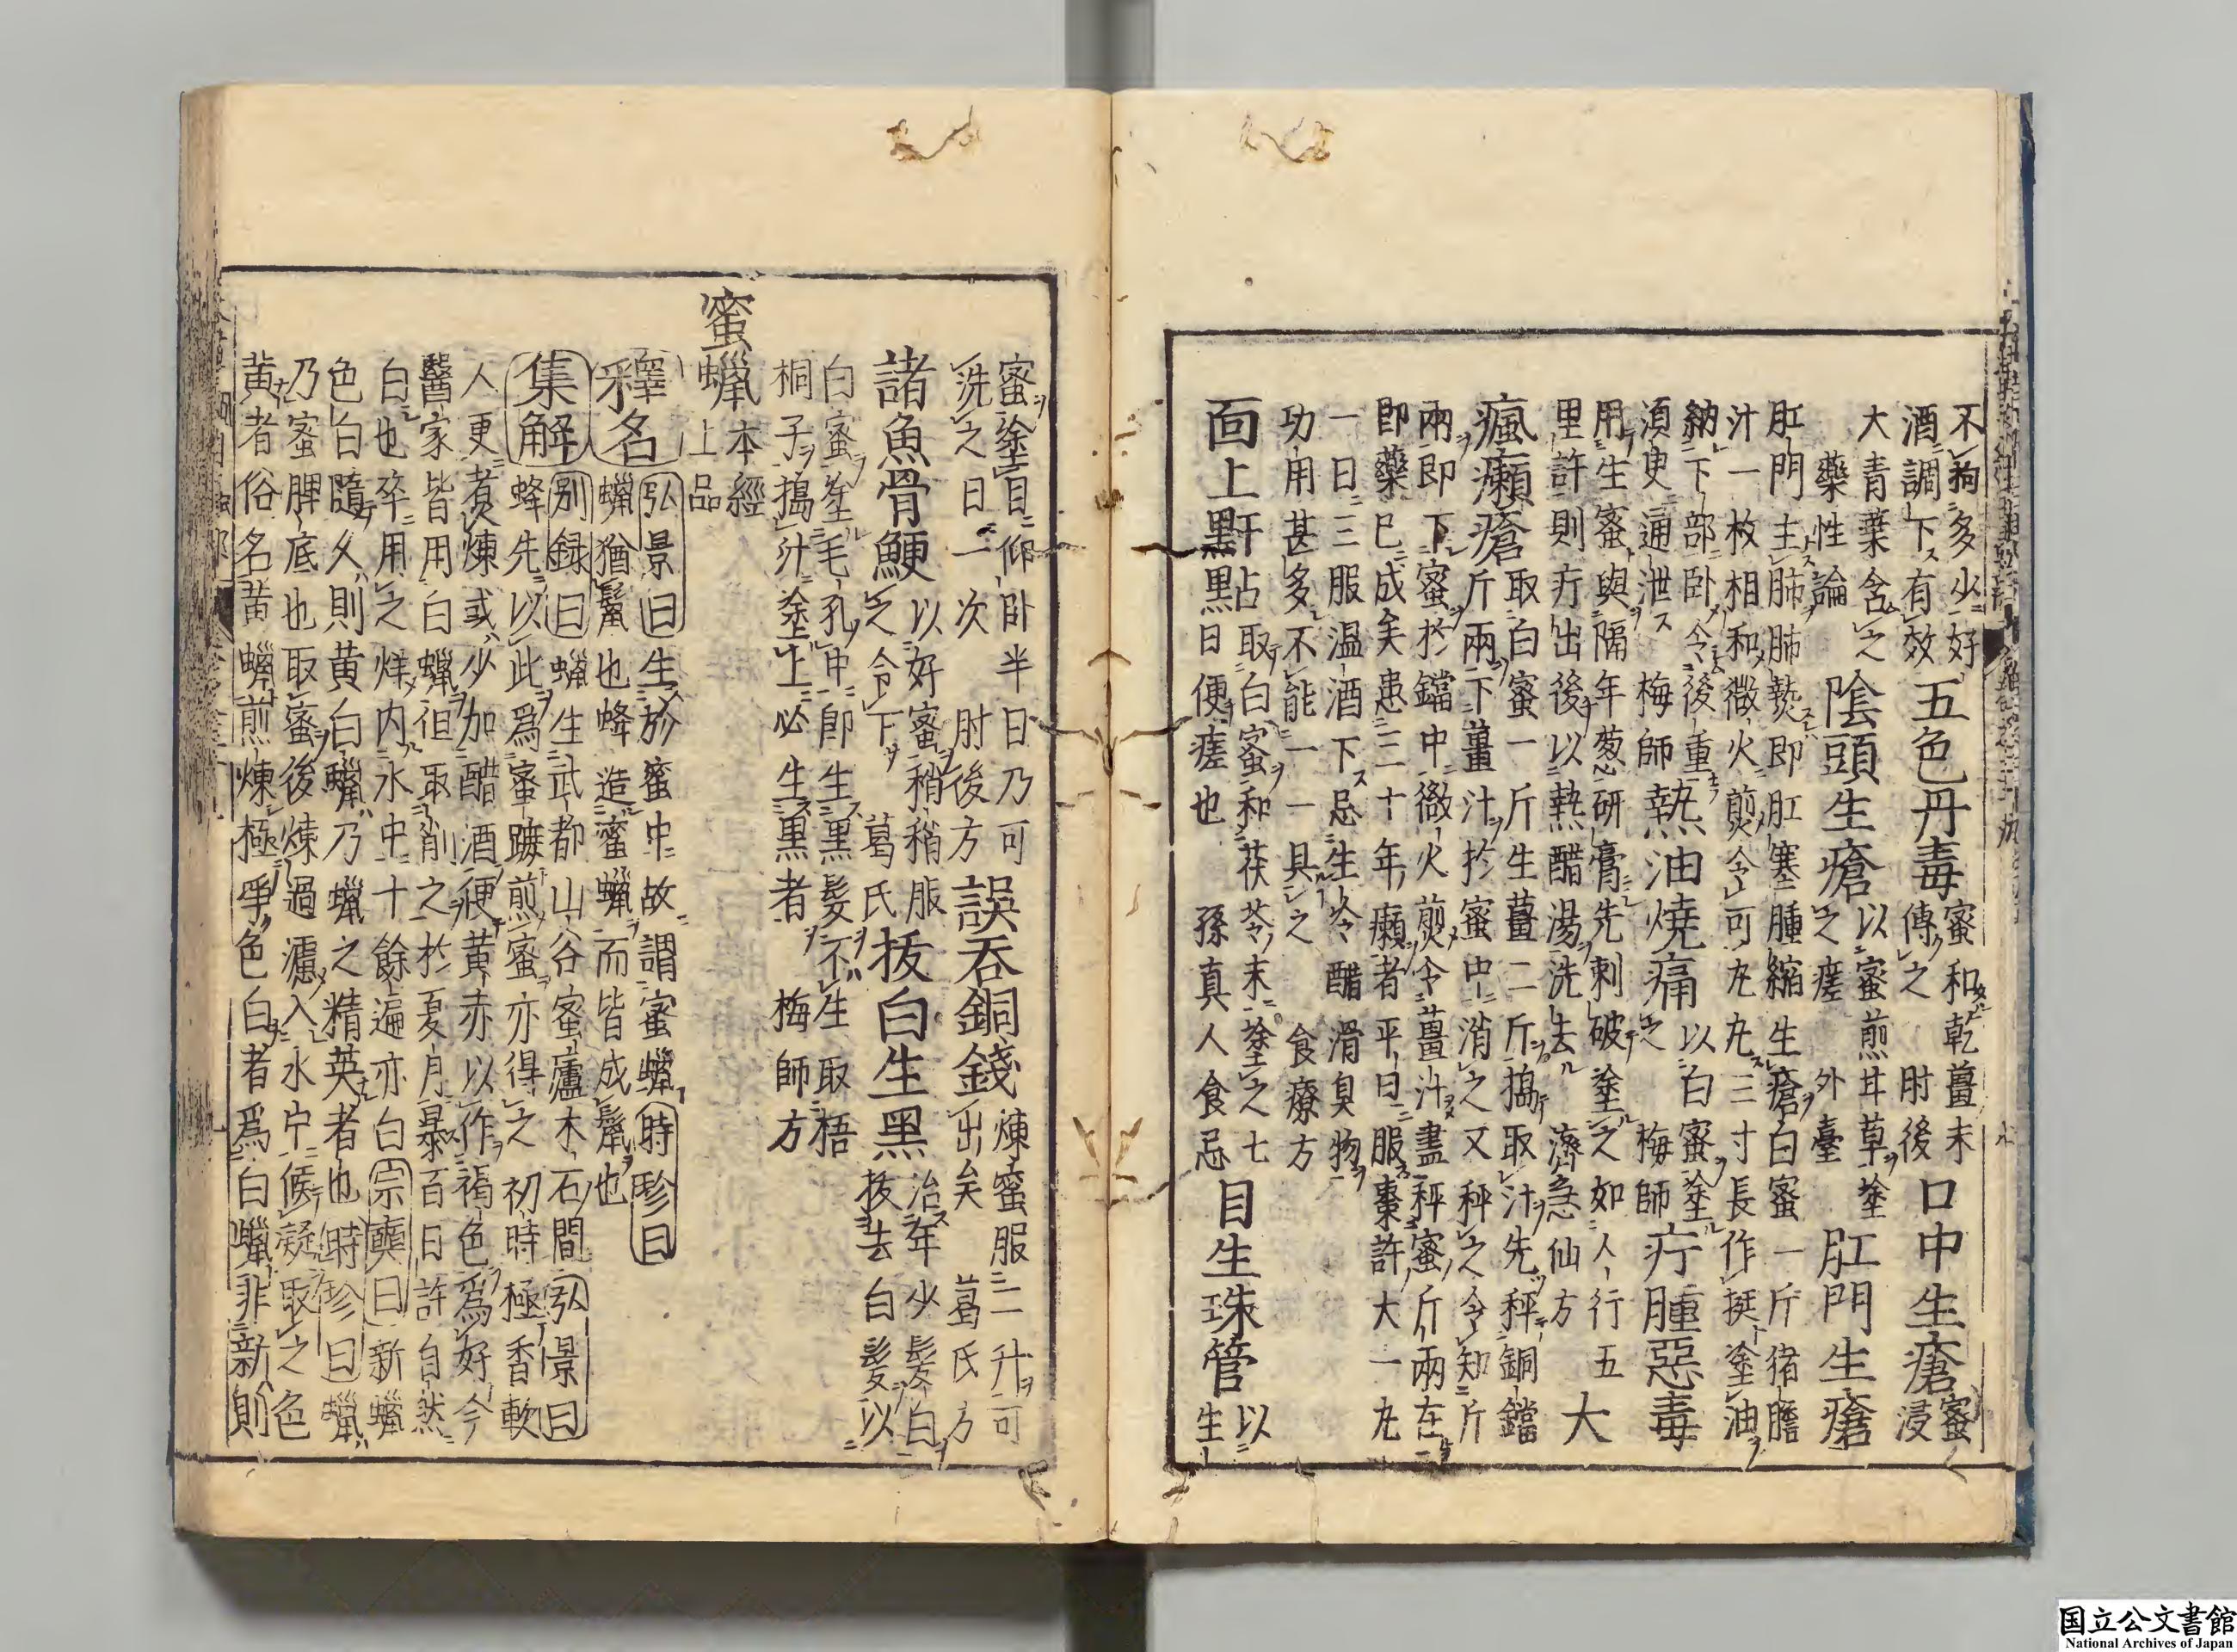 不拘多少好
酒調下有效
五色丹毒
蜜和乾薑末
傅之 肘後
口中生瘡
蜜
浸
大青葉含之
藥性論
陰頭生瘡
以蜜煎甘草塗
之瘥 外臺
肛門生瘡
肛門主肺肺熱即肛塞腫縮生瘡白蜜一斤猪膽
汁一枚相和微火煎令可丸丸三寸長作挺塗油
納下部卧令後重
須臾通泄 梅師
熱油燒痛
以白蜜塗
之 梅師
疔腫惡毒
用生蜜與隔年葱研膏先刺破塗之如人行五
里許則疔出後以熱醋湯洗去 濟急仙方
大
瘋癩瘡
取白蜜一斤生薑二斤搗取汁先秤銅鐺
斤兩下薑汁於蜜中消之又秤之令知斤
兩即下蜜於鐺中微火煎令薑汁盡秤蜜斤兩在
即藥已成矣患三十年癩者平旦服棗許大一丸
一日三服温酒下忌生冷醋滑臭物
功用甚多不能一一具之 食療方
面上䵟點
取白蜜和茯苓末塗之七
日便瘥也 孫真人食忌
目生珠管
以
生
蜜塗目仰卧半日乃可
洗之日一次 肘後方
誤吞銅錢
煉蜜服二升可
出矣 葛氏方
諸魚骨鯁
以好蜜稍稍服
之令下 葛氏
拔白生黑
治年少髮白
拔去白髮以
白蜜塗毛孔中即生黑髮不生取梧
桐子搗汁塗上必生黑者 梅師方
蜜蠟
本經
上品
釋名
弘景曰生於蜜中故謂蜜蠟時珍曰
蠟猶鬣也蜂造蜜蠟而皆成鬣也
集解
别録曰蠟生武都山谷蜜廬木石間弘景曰
蜂先以此爲蜜蹠煎蜜亦得之初時極香軟
人更煮煉或少加醋酒便黄赤以作褐色爲好今
醫家皆用白蠟但取削之於夏月暴百日許自然
白也卒用之烊内水中十餘遍亦白宗奭曰新蠟
色白隨久則黄白蠟乃蠟之精英者也時珍曰蠟
乃蜜脾底也取蜜後煉過濾入水中候凝取之色
黄者俗名黄蠟煎煉極爭色白者爲白蠟非新則
国立公文書館
National Archives of Japan